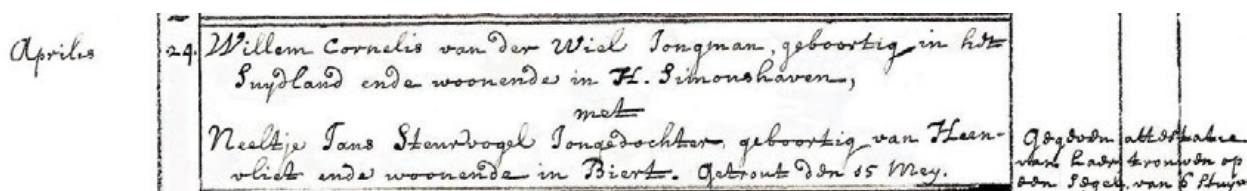 Aprilis
24. Willem Cornelis van der Wiel Jongman, geboortig in hdt
Suydland ende woonende in H. Simonshaven,
met
Neeltje Jans Steurvogel Jongedochter, geboortig van Heen-
vliet ende woonende in Biert. Getrout den 15 Mey.
Gegeven attestatie
van haer trouwen op
een Segel van 6 stuyv